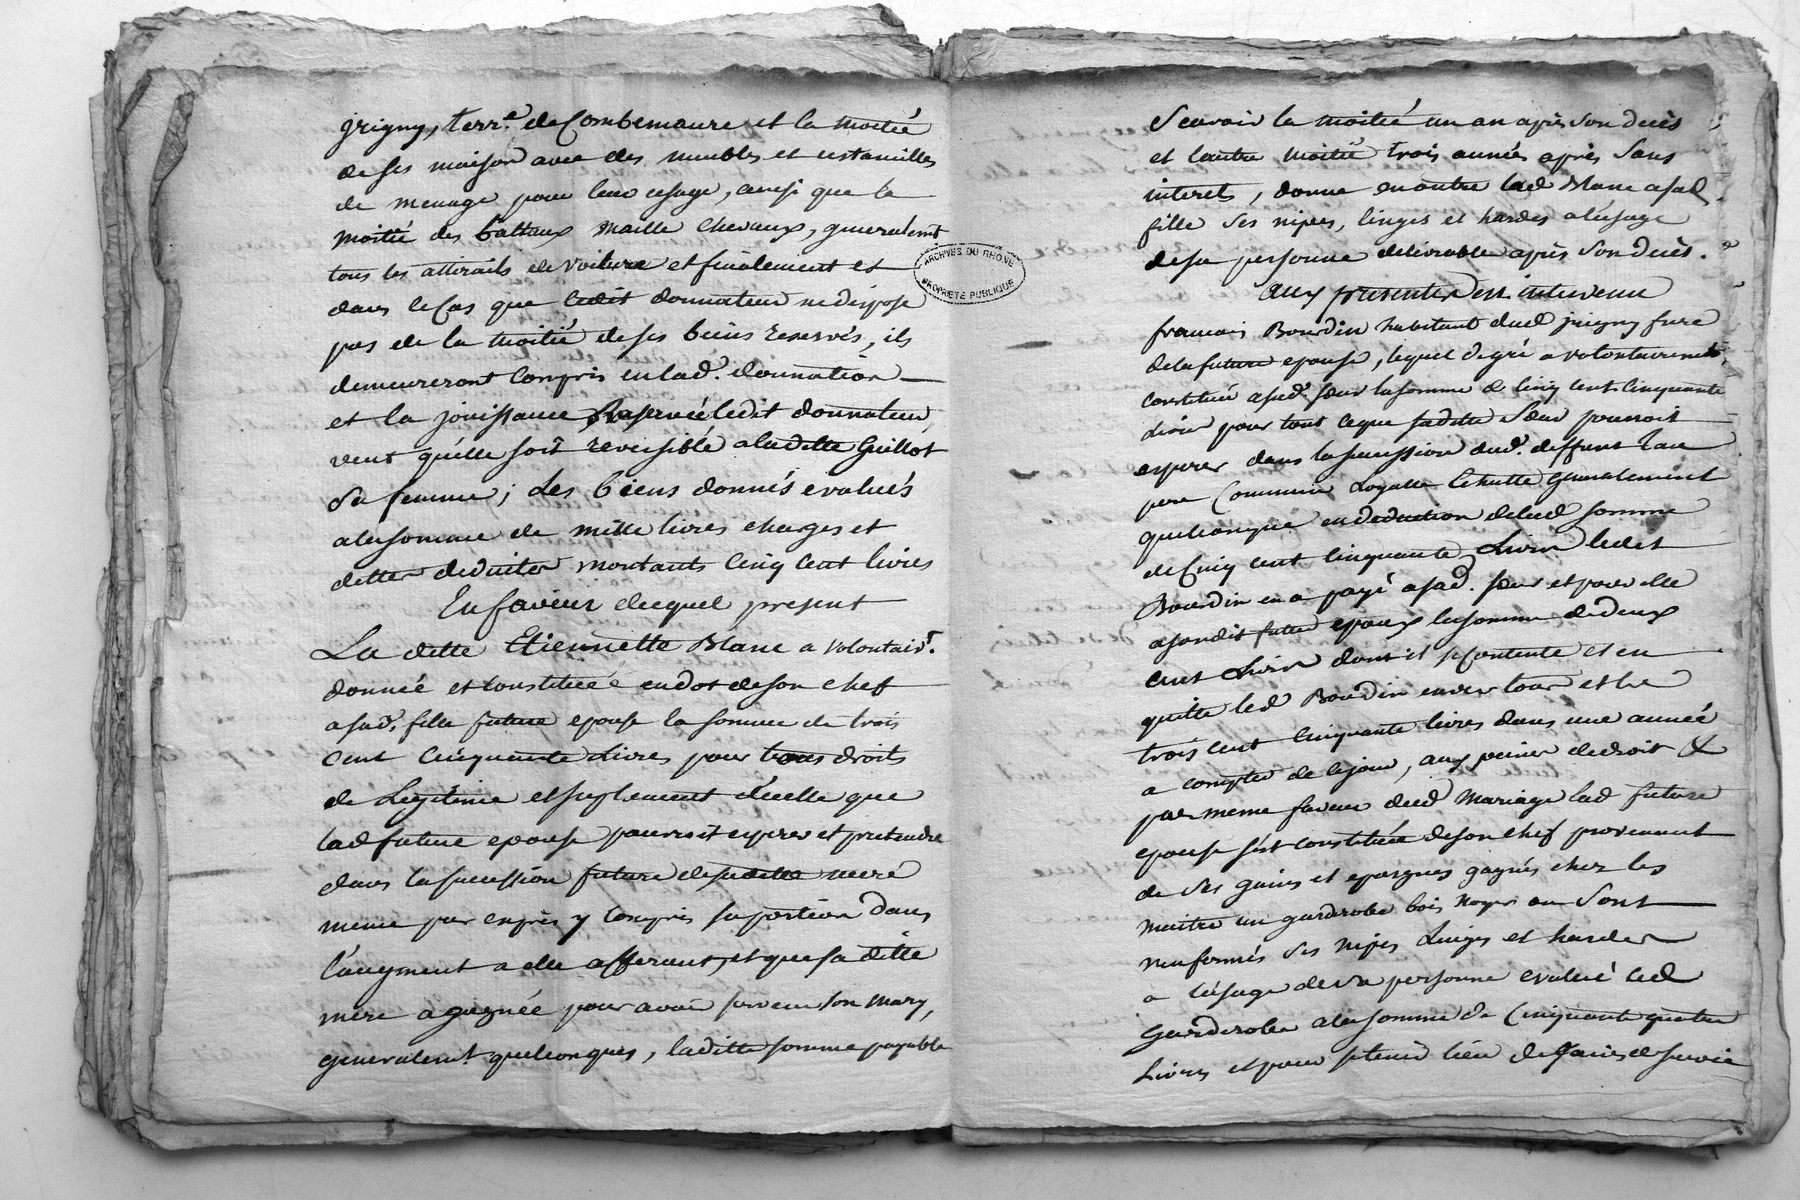 grigny, terr.e de Combemaure et la moitié
de ses maison avec des meubles et ustancilles
de menage pour leur usage, ainsi que la
moitié des battaux maille chevaux, generalemt
tous les attirails de voiture et finalement et
dans le Cas que ledit donnateur ne dispose
pas de la moitié de ses biens reservés, ils
demeureront compris en lad.e donnation
et la jouissance Reservée ledit donnateur
veut quélle soit reversible a ladite Guillot
sa femme; Les biens donnés evalués
a la somme de mille livres charges et
dettes deduites montants Cinq Cent livres
En faveur duequel present
La ditte Etiennette Blanc a volontair.t
donné et constitué en dot de son chef
a sad. fille future epouse la somme de trois
Cent Cinquante Livres pour tous droits
de Legitime et suplement d'icelle que
lad future epouse pourroit esperer et pretendre
dans la sucession future de sadite mere
meme par exprès y Compris sa portion dans
l'augment a elle afferant, et que sa ditte
mere a gagnée pour avoir survecu son mary,
generalemt quelconques, laditte somme payable
ARCHIVES DU RHONE
PROPRIETE PUBLIQUE
Scavoir la moitié un an après son decès
et lautre moitié trois années après sans
interets, donne en outre lad Blanc a sad
fille ses nipes, linges et hardes a l'usage
de sa personne delivrable après son decès.
Aux presentes est intervenu
francois Bourdin habitant dud grigny frere
de la future epouse, lequel de gré a volontairement
constitué a sad. sœur la somme de Cinq Cent Cinquante
Livres pour tout ce que sadite sœur pourroit
esperer dans la sucession dud. deffunt leur
pere Commun Loyalle Echutte generalement
quelconque en deduction delad somme
de Cinq Cent Cinquante Livres ledit
Bourdin en a payé a sad. sœur et pour elle
a sondit futur epoux la somme de deux
Cent Livres dont il se Contente et en
quitte led Bourdin envers tous et les
trois Cent Cinquante livres dans une année
a compter de ce jour, aux peines de droit &
par meme faveur dud Mariage lad future
epouse s'est constituée de son chef provenant
de ses gains et epargnes gagnés chez les
maitre un garderobe bois noyer ou sont
renfermés ses nipes Linges et hardes
a l'usage de sa personne evalué led
garderobe a la somme de Cinquante quatre
Livres et pour tenir lieu de gains de survie